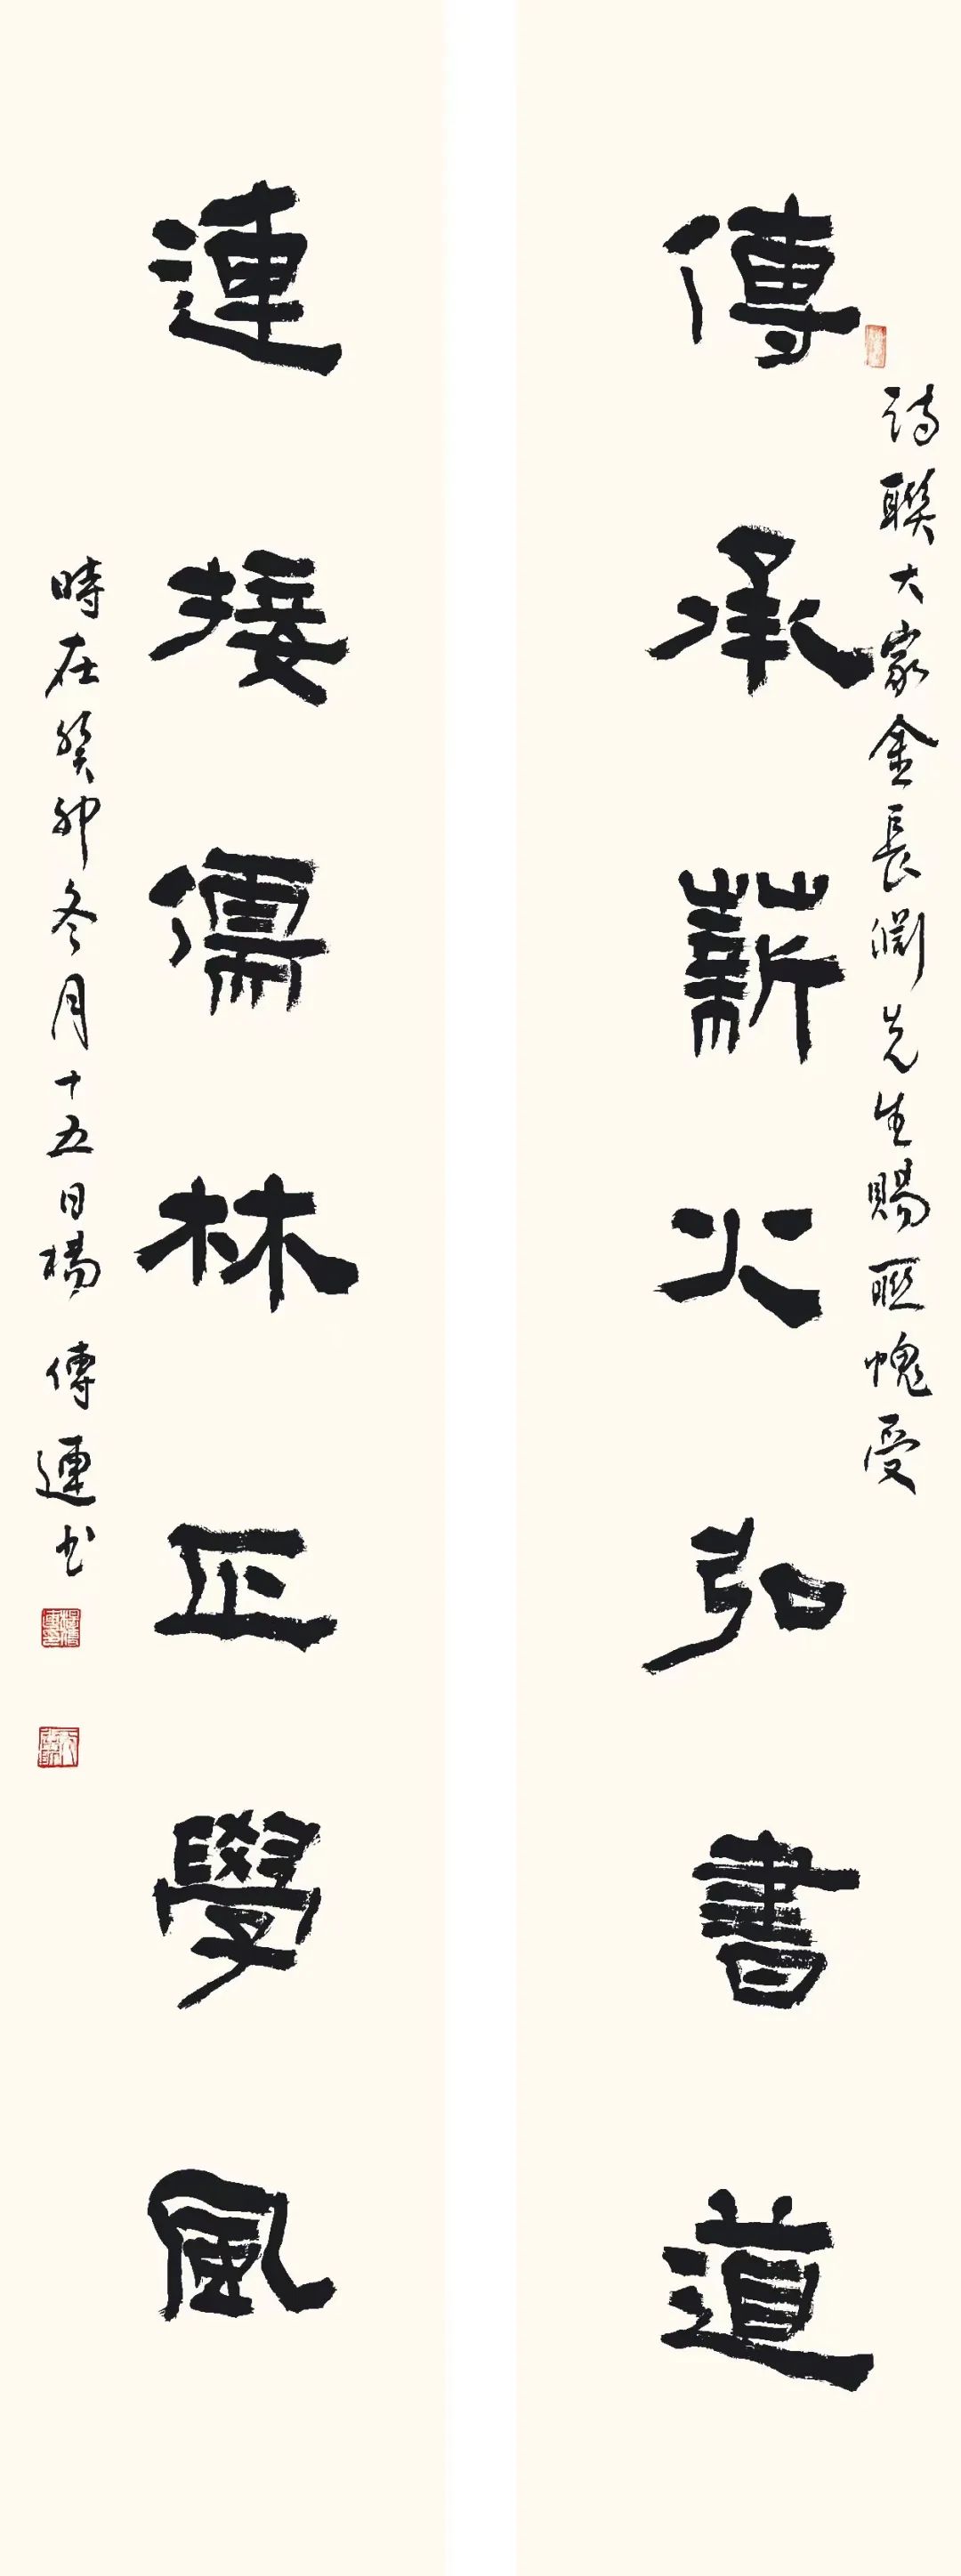 詩聯大家金長淵先生賜聯愧受
傳承薪火弘書道
連接儒林正學風
時在癸卯冬月十五日楊傳連書